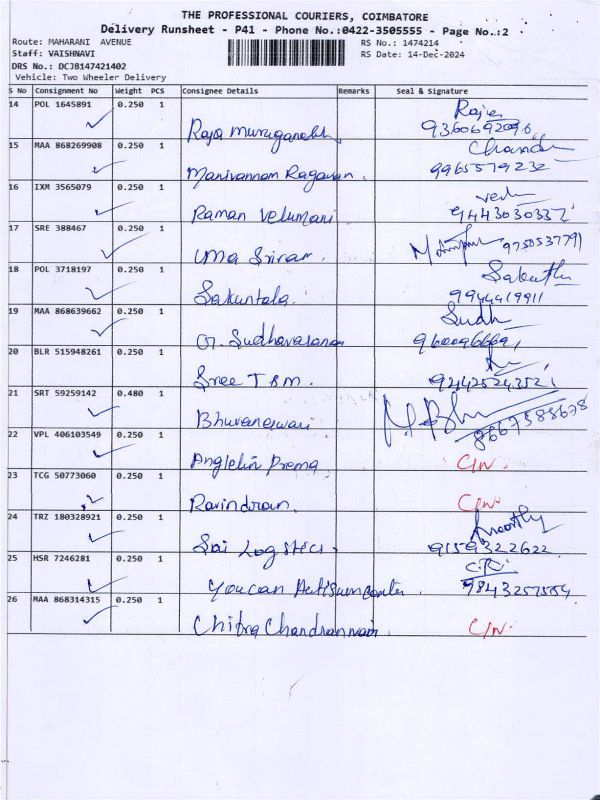 THE PROFESSIONAL COURIERS, COIMBATORE
Delivery Runsheet - P41 - Phone No.:0422-3505555 - Page No.:2
Route: MAHARANI AVENUE
RS No.: 1474214
Staff: VAISHNAVI
RS Date: 14-Dec-2024
DRS No.: DCJB147421402
Vehicle: Two Wheeler Delivery
S No Consignment No Weight PCS Consignee Details Remarks Seal & Signature
14 POL 1645891 0.250 1
Raja Muruganabh 9360692096
15 MAA 868269908 0.250 1
Manivannam Ragavan. 9965579232
16 IXM 3565079 0.250 1
Raman Velumani 9443030332
17 SRE 388467 0.250 1
Uma Sriram. 9750537791
18 POL 3718197 0.250 1
Sakuntala. 9944419911
19 MAA 868639662 0.250 1
G. Sudhavasanan
20 BLR 515948261 0.250 1
Sree TBM. 9244252435
21 SRT 59259142 0.480 1
Bhuvaneswari 8667388678
22 VPL 406103549 0.250 1
Anglelin Prema C/N.
23 TCG 50773060 0.250 1
Ravindran. C/N.
24 TRZ 180328921 0.250 1
Sai Logstics. 9159322622
25 HSR 7246281 0.250 1
Youcan Autisum center 9843257554
26 MAA 868314315 0.250 1
Chitra Chandran C/N.